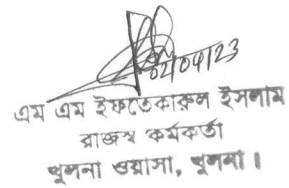 02/04/23
এম এম ইফতেকারুল ইসলাম
রাজস্ব কর্মকর্তা
খুলনা ওয়াসা, খুলনা।